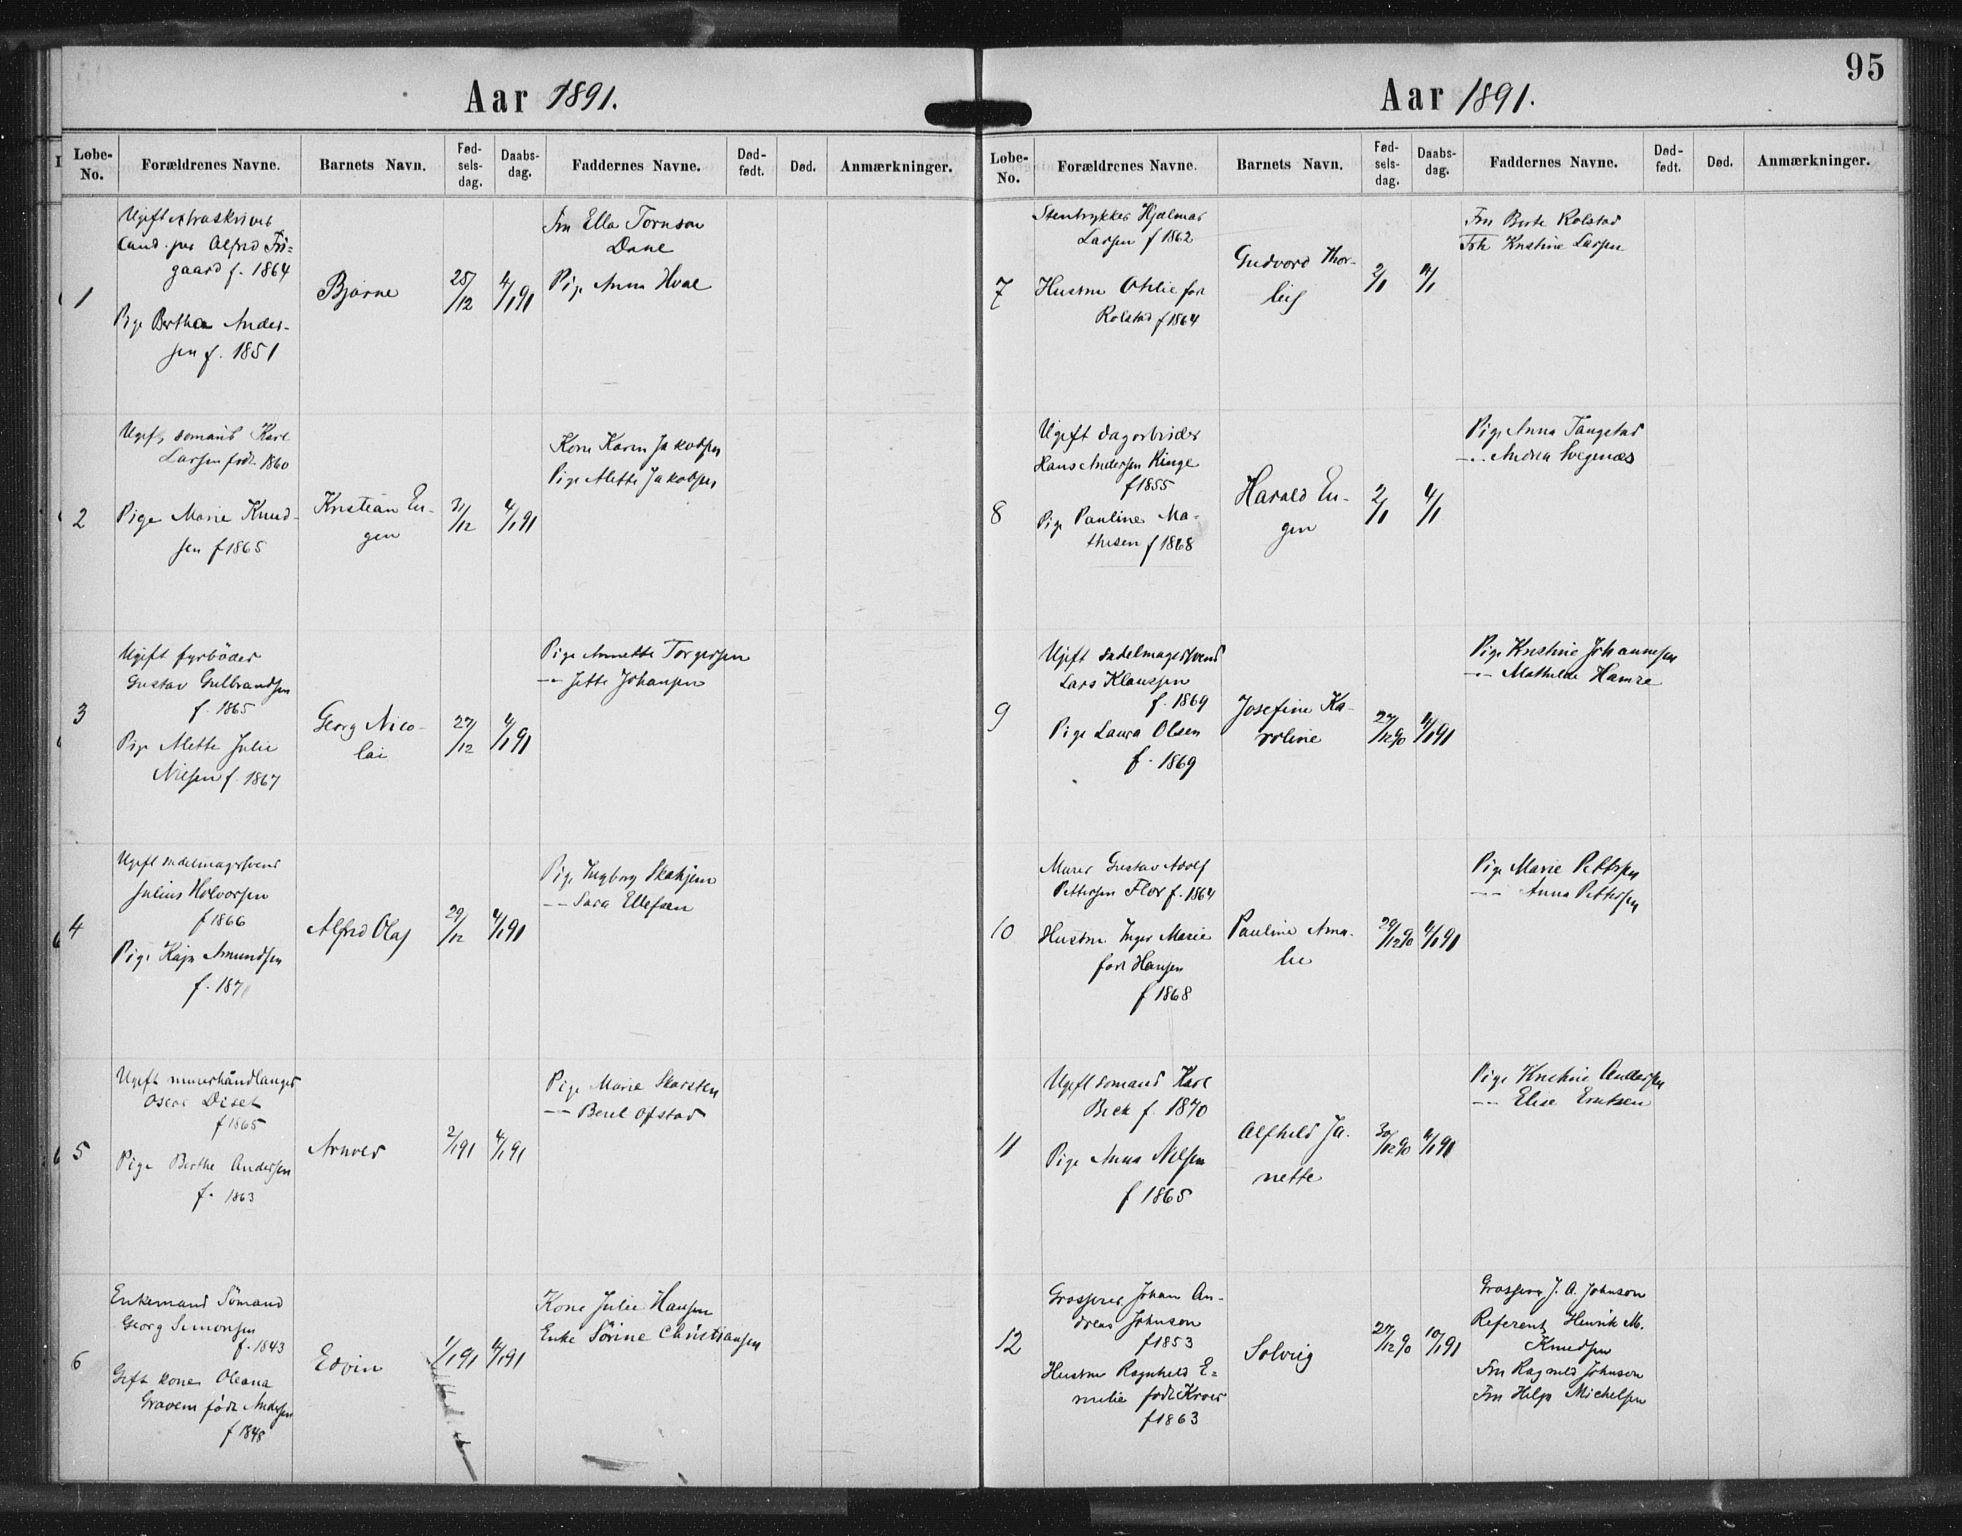 95
Aar 1891.
Løbe-No. Forældrenes Navne. Barnets Navn. Fødselsdag. Daabsdag. Faddernes Navne. Dødfødt. Død. Anmærkninger.
1
Ugift
cand. jur Alfred Fri=
gaard f. 1864
Pige Berthe Ander-
sen f. 1851
Bjarne
28/12
4/1 91
Fru Ella Tornson
Dane
Pige Anna Hval
2
Ugift sømand Karl
Larsen født 1860
Pige Marie Knud-
sen f 1865
Kristian Eu-
gen
31/12
4/1 91
Kone Karen Jakobsen
Pige Mette Jakobsen
3
Ugift fyrbøder
Gustav Gulbrandsen
f. 1865
Pige Mette Julie
Nilsen f. 1867
Georg Nico-
lai
27/12
4/1 91
Pige Annette Torgersen
-"- Jette Johansen
4
Ugift sadelmagersvend
Julius Halvorsen
f 1866
Pige Kaja Amundsen
f. 187
Alfred Olaf
29/12
4/1 91
Pige Ingborg Skakjem
-"- Sara Ellefsen
5
Ugift murerhåndlanger
Oscar Diset
f 1865
Pige Berthe Andersen
f. 1863
Arnold
2/1 91
4/1 91
Pige Marie Skarsten
-"- Beret Ofstad
6
Enkemand Sømand
Georg Simonsen
f. 1843
Gift kone Oleana
Gravem født Andersen
f 1848
Edvin
1/1 91
4/1 91
Kone Julie Hansen
Enke Sørine Christiansen
Aar 1891.
Løbe-No. Forældrenes Navne. Barnets Navn. Fødselsdag. Daabsdag. Faddernes Navne. Dødfødt. Død. Anmærkninger.
7
Stentrykker Hjalmar
Larsen f 1862
Hustru Otilie født
Rolstad f 1864
Gudvord Thor-
leif
2/1
Fru Berte Rolstad
Frk Kristine Larsen
8
Ugift dagarbeider
Hans Andersen Ringe
f 1855
Pige Pauline Ma-
thesen f 1868
Harald Eu-
gen
2/1
4/1
Pige Anna Tangstad
-"- Andrea Svegenæs
9
Ugift sadelmagersvend
Lars Klaussen
f. 1869
Pige Laura Olsen
f. 1869
Josefine Ka-
roline
27/12 90
4/1 91
Pige Kristine Johannesen
-"- Mathilde Hamre
10
Murer Gustav Adolf
Pettersen Flor f. 1864
Hustru Inger Marie
født Hansen
f 1868
Pauline Ama-
lie
29/12 90
4/1 91
Pige Marie Pettersen
-"- Anna Pettersen
11
Ugift sømand Karl
Beck f. 1870
Pige Anna Nilsen
f 1865
Alfhild Ja-
nette
30/12 90
4/1 91
Pige Kristine Andersen
-"- Elise Erntsen
12
Grosserer Johan An-
dreas Johnson
f 1853
Hustru Ragnhild E=
milie født Kroer
f 1863
Solveig
27/12 90
10/1 91
Grosserer J. A. Johnson
Referent Henrik M.
Knudsen
Fru Ragnild Johnson
Fru Helga Michelsen